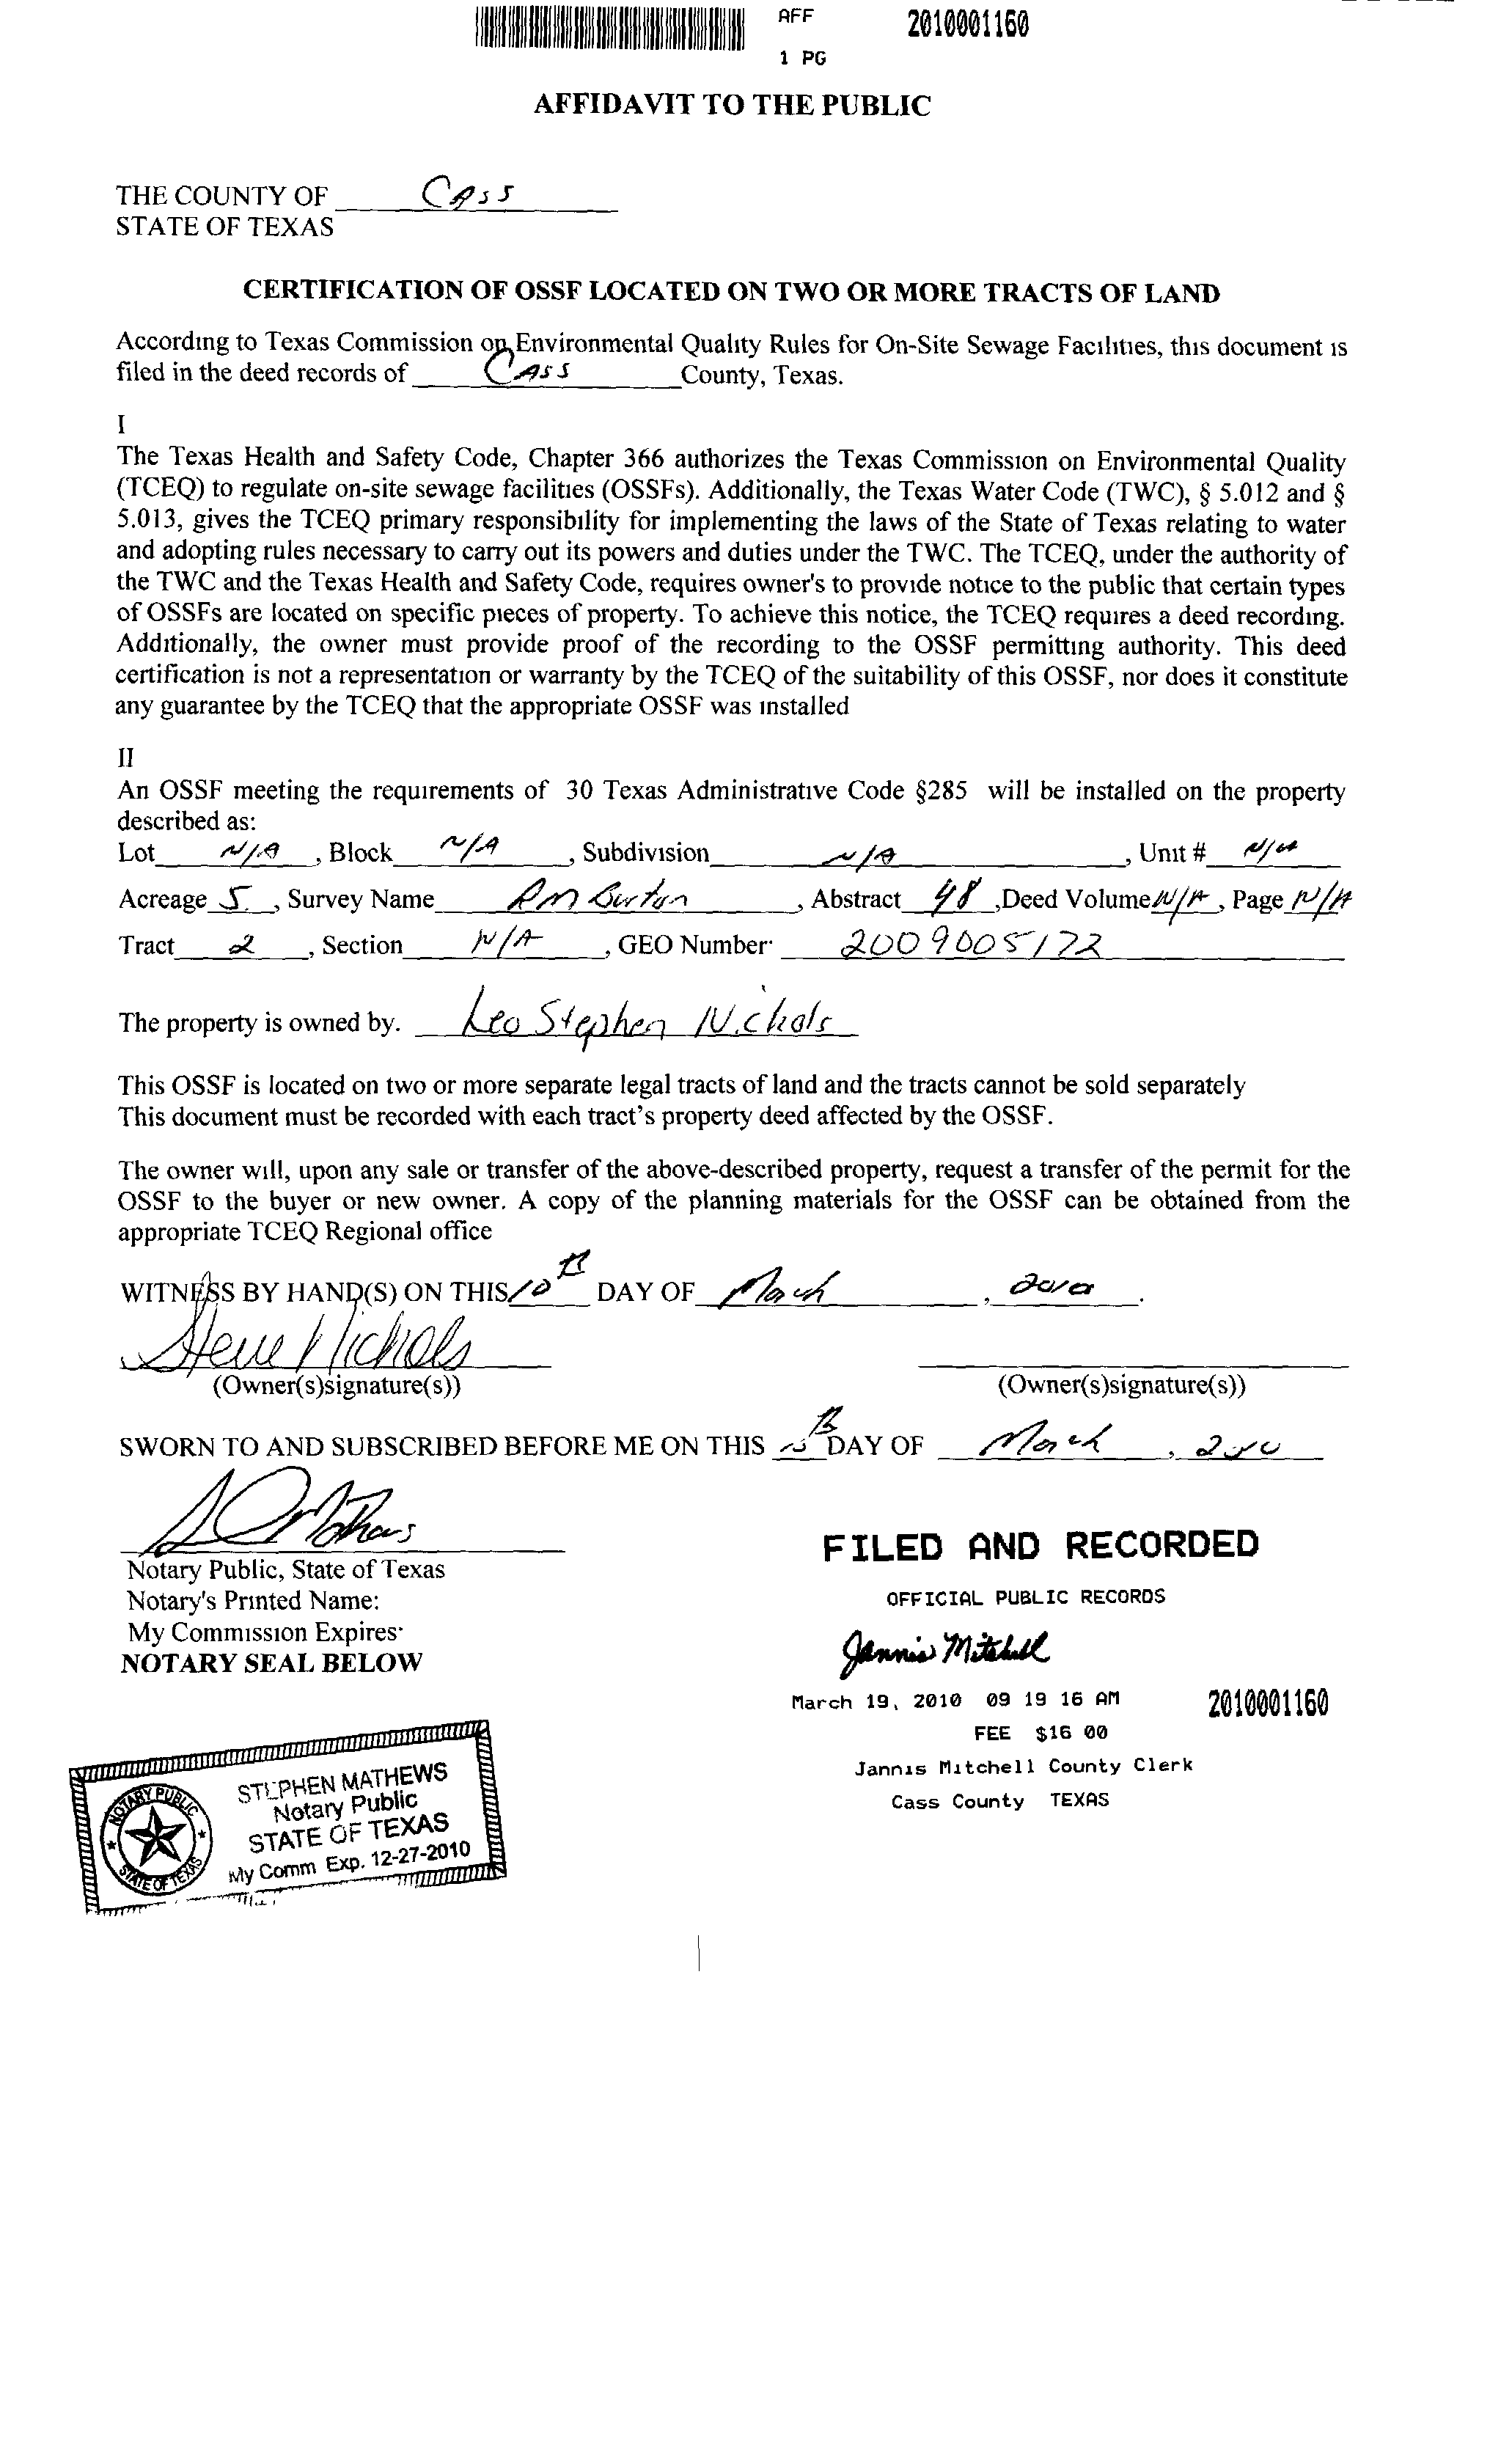 AFF 2010001160
1 PG
AFFIDAVIT TO THE PUBLIC
THE COUNTY OF Cass
STATE OF TEXAS
CERTIFICATION OF OSSF LOCATED ON TWO OR MORE TRACTS OF LAND
According to Texas Commission on Environmental Quality Rules for On-Site Sewage Facilities, this document is
filed in the deed records of Cass County, Texas.
I
The Texas Health and Safety Code, Chapter 366 authorizes the Texas Commission on Environmental Quality
(TCEQ) to regulate on-site sewage facilities (OSSFs). Additionally, the Texas Water Code (TWC), § 5.012 and §
5.013, gives the TCEQ primary responsibility for implementing the laws of the State of Texas relating to water
and adopting rules necessary to carry out its powers and duties under the TWC. The TCEQ, under the authority of
the TWC and the Texas Health and Safety Code, requires owner's to provide notice to the public that certain types
of OSSFs are located on specific pieces of property. To achieve this notice, the TCEQ requires a deed recording.
Additionally, the owner must provide proof of the recording to the OSSF permitting authority. This deed
certification is not a representation or warranty by the TCEQ of the suitability of this OSSF, nor does it constitute
any guarantee by the TCEQ that the appropriate OSSF was installed
II
An OSSF meeting the requirements of 30 Texas Administrative Code §285 will be installed on the property
described as:
Lot N/A , Block N/A , Subdivision N/A , Unit # N/A
Acreage 5. , Survey Name RM Burton , Abstract 48 ,Deed Volume N/A , Page N/A
Tract 2 , Section N/A , GEO Number 2009005172
The property is owned by. Leo Stephen Nichols
This OSSF is located on two or more separate legal tracts of land and the tracts cannot be sold separately
This document must be recorded with each tract's property deed affected by the OSSF.
The owner will, upon any sale or transfer of the above-described property, request a transfer of the permit for the
OSSF to the buyer or new owner. A copy of the planning materials for the OSSF can be obtained from the
appropriate TCEQ Regional office
WITNESS BY HAND(S) ON THIS 10th DAY OF March , 2010 .
Steve Nichols
(Owner(s)signature(s)) (Owner(s)signature(s))
SWORN TO AND SUBSCRIBED BEFORE ME ON THIS DAY OF March , 2010
Mathews
Notary Public, State of Texas
Notary's Printed Name:
My Commission Expires
NOTARY SEAL BELOW
FILED AND RECORDED
OFFICIAL PUBLIC RECORDS
Jannis Mitchell
March 19, 2010 09 19 16 AM 2010001160
FEE $16 00
Jannis Mitchell County Clerk
Cass County TEXAS
NOTARY PUBLIC
STATE OF TEXAS
STEPHEN MATHEWS
Notary Public
STATE OF TEXAS
My Comm Exp. 12-27-2010